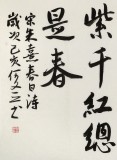 紫千紅總
是春
宋朱熹春日詩
歲次己亥